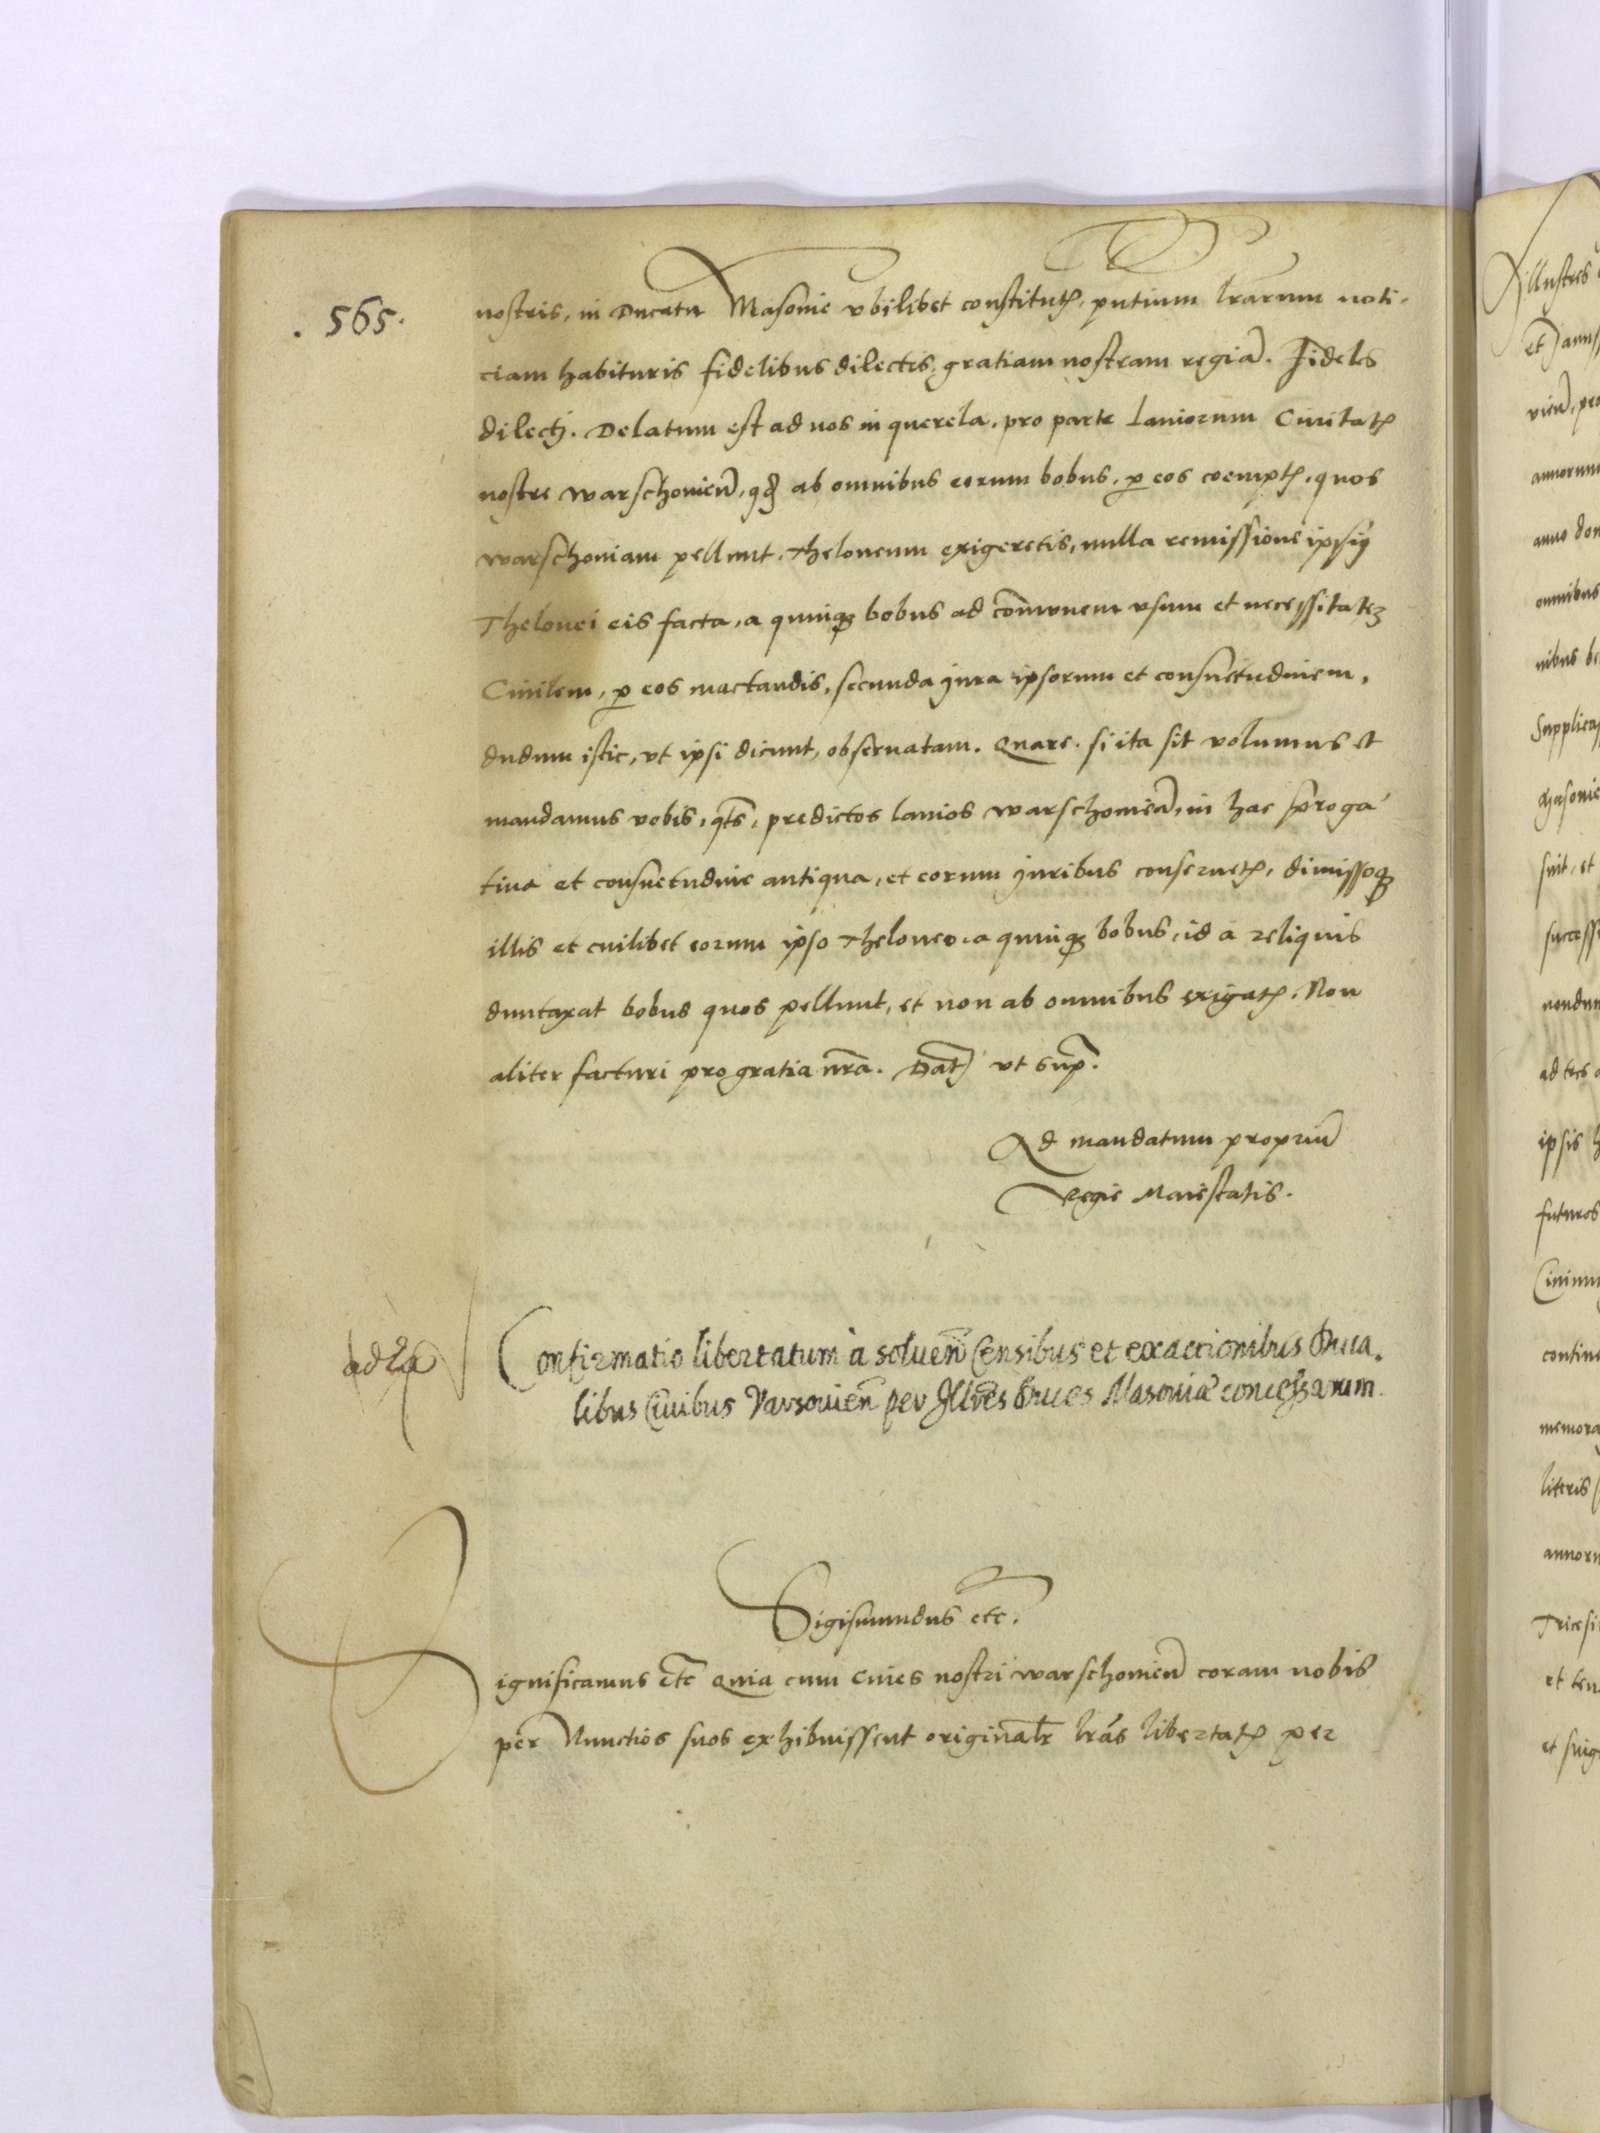 . 565.
nostris, in Ducatu Masovie vbilibet constitut., pntium lrarum noti-
ciam habituris fidelibus dilectis, gratiam nostram regia. Fideles
dilecti. Delatum est ad nos in querela, pro parte Laniorum Civitat.
nostre warschovien, qd ab omnibus eorum bobus, p eos coempt., quos
warschoviam pellunt, Theloneum exigeretis, nulla remissione ipsiq
Thelonei eis facta, a quinq bobus ad comunem vsum et necessitatez
Civilem, p eos mactandis, secunda jura ipsorum et consuetudinem,
dudum istic, vt ipsi dicunt, observatam. Quare. si ita sit volumus et
mandamus vobis, qts, predictos lanios warschovien, in hac proga-
tiva et consuetudine antiqua, et eorum juribus conservet., dimissoq
illis et cuilibet eorum ipso Theloneo, a quinq bobus, id à reliquis
duntaxat bobus quos pellunt, et non ab omnibus exigat. Non
aliter facturi pro gratia nra. Dat vt sup.
Ad mandatum propriu
Regie Maiestatis.
Confirmatio libertatum à soluen Censibus et exactionibus Duca-
libus Civibus Varsovien per Illres Duces Masoviæ concessarum.
Sigismundus etc.
Significamus etc Quia cum Cives nostri warschovien coram nobis
per Nunctios suos exhibuissent original lras libertat. per
Illustres
et Janus
annorum
omnibus
Supplica
Masovie
suit, et
successi
ipsis
futuros
contin
memora
literis